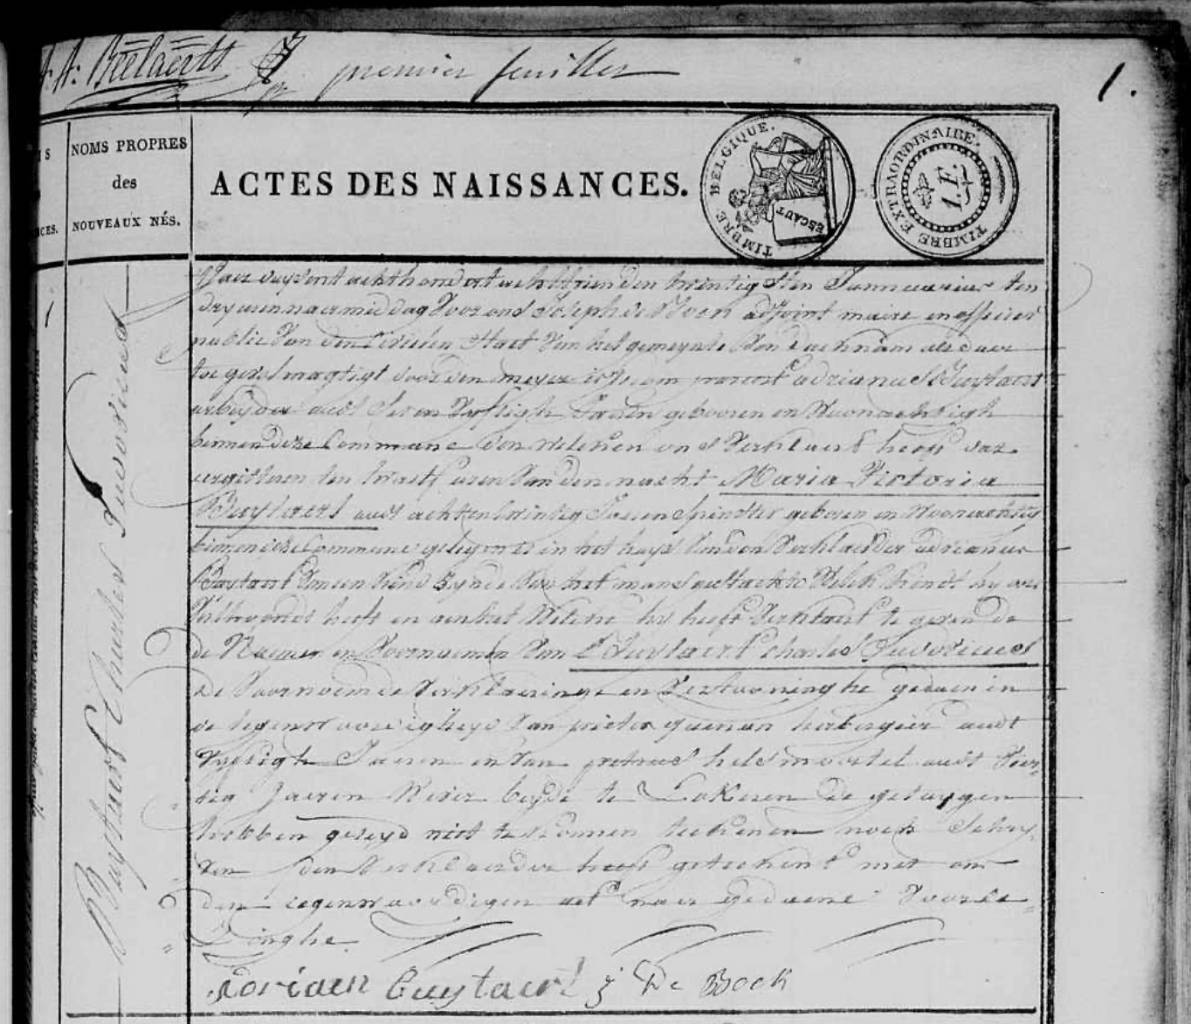 A: Beelaerts premier feuillet
1.
NOMS PROPRES
des
NOUVEAUX NÉS.
ACTES DES NAISSANCES.
TIMBRE BELGIQUE.
ESCAUT
TIMBRE EXTRAORDINAIRE.
1. F.
1
Buytaert Charles Ludovicus
Jaer duysent acht hondert achtthien den twintigsten Januarius ten
dry uren naermiddag voor ons Joseph de Bock adjoint maire en officier
public van den civielen staet van het gemeynte van Daknam
gemagtigt door den meyer is gecompareert adrianus Buytaert
arbeyder oudt en vyftigh Jaeren gebooren en woonachtigh
binnen deze Commune den welcken ons verklaert heeft dat
eergisteren ten twaelf uren van den nacht Maria Victoria
Buytaert oudt achtentwintig Jaeren spinster geboren en woonachtig
binnen deze Commune gelegen is in het huys van den verklaerder adrianus
Buytaert van een kind zynde van het mans geslachte welk kindt hy ons
vertoondt heeft en aen het welcke hy heeft verklaert te geven de
de Naemen en Voornaemen van Buytaert charles Ludovicus
De voornoemde verklaeringe en vertooninghe gedaen in
de tegenwoordigheyd van pieter herbergier oudt
vyftigh Jaeren en van petrus helsmoortel oudt vier-
tig Jaeren Wever beyde te Lokeren de getuygen
hebben geseyd niet te konnen teekenen noch schry-
ven den verklaerder heeft geteekent met ons
den tegenwoordigen act naer gedaene voorle-
zinghe.
Adriaen Buytaert J De Bock